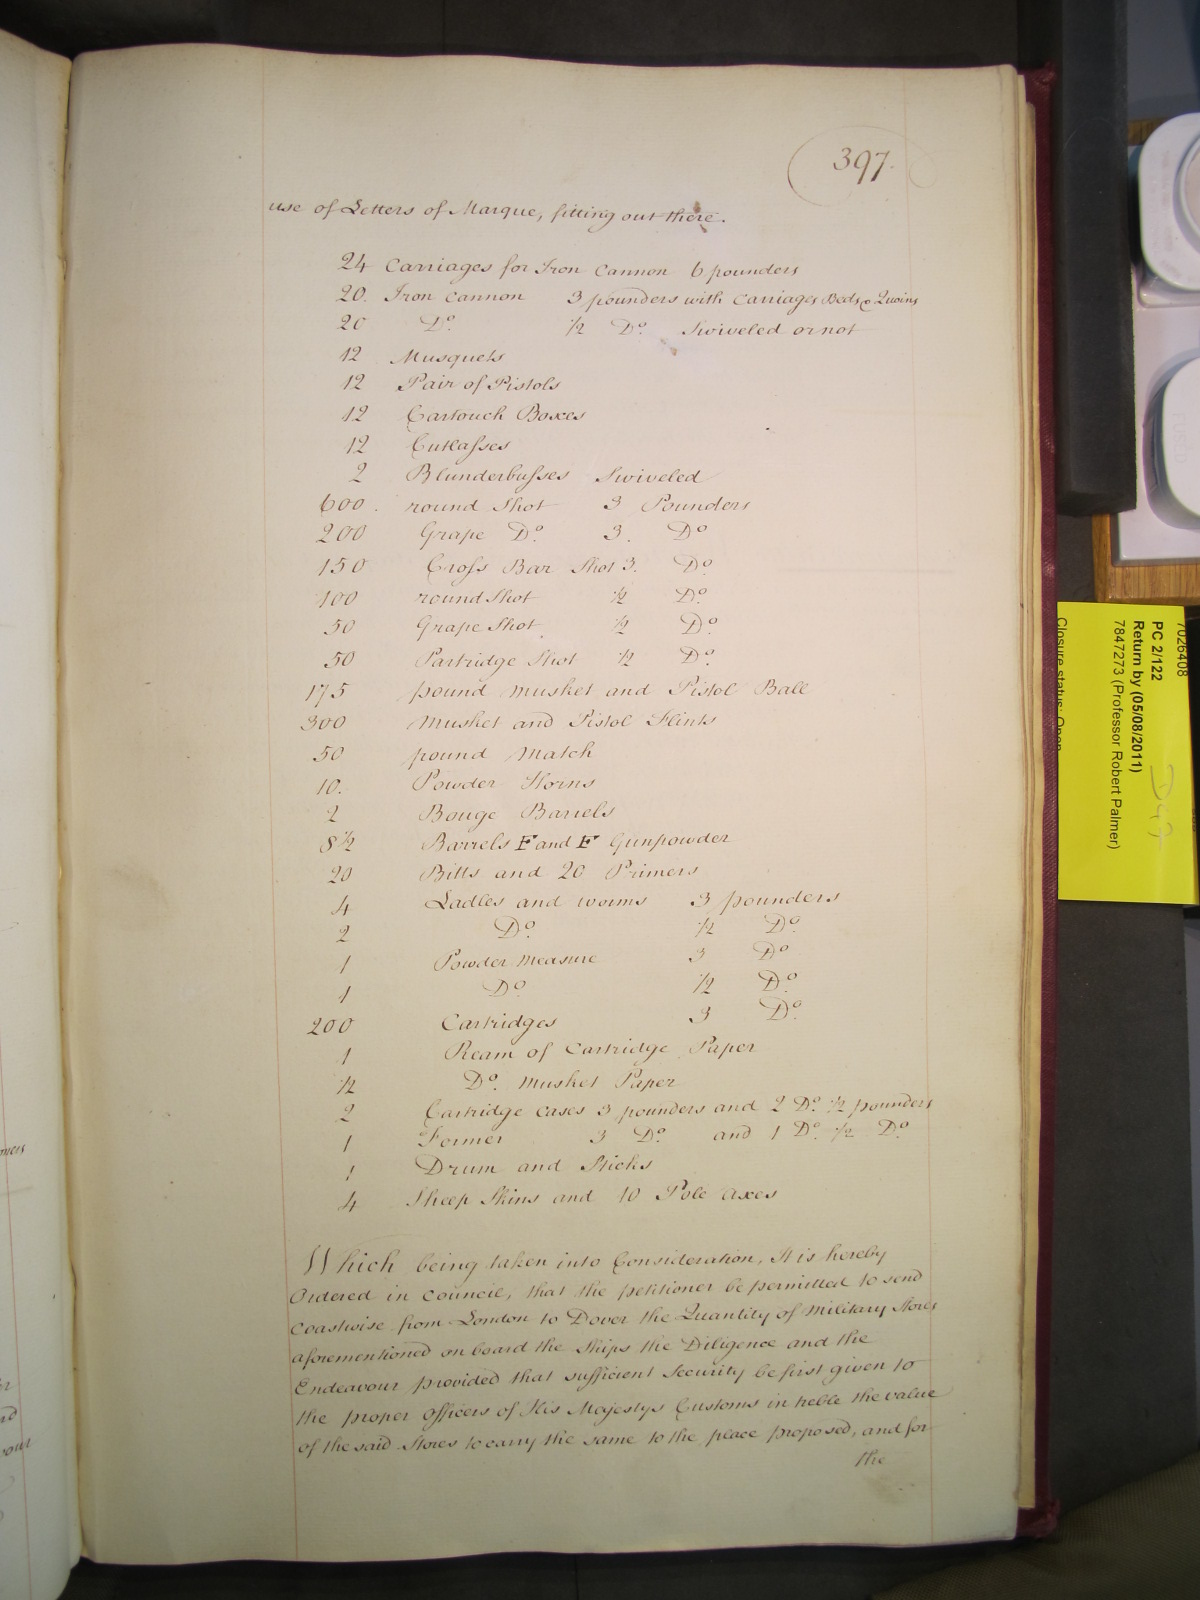 397.
use of Letters of Marque, fitting out there.
24 Carriages for Iron Cannon 6 pounders
20. Iron Cannon 3 pounders with Carriages Beds & Quoins
20 Do. ½ Do. Swiveled or not
12 Musquets
12 Pair of Pistols
12 Cartouch Boxes
12 Cutlasses
2 Blunderbusses Swiveled
600. round Shot 3 Pounders
200 Grape Do. 3. Do
150 Cross Bar Shot 3. Do
100 round Shot ½ Do.
50 Grape Shot ½ Do.
50 Partridge Shot ½ Do.
175 pound musket and Pistol Ball
300 Musket and Pistol Flints
50 pound Match
10. Powder Horns
2 Bouge Barrels
8½ Barrels F and F Gunpowder
20 Bitts and 20 Primers
4 Ladles and worms 3 pounders
2 Do. ½ Do.
1 Powder measure 3 Do
1 Do ½ Do.
200 Cartridges 3 Do.
1 Ream of Cartridge Paper
½ Do. Musket Paper
2 Cartridge cases 3 pounders and 2 Do. ½ pounders
1 Former 3 Do. and 1 Do. ½ Do.
1 Drum and Sticks
4 Sheep Skins and 10 Pole Axes
Which being taken into Consideration, It is hereby
Ordered in Council, that the petitioner be permitted to send
Coastwise from London to Dover the Quantity of Military Stores
aforementioned on board the Ships the Diligence and the
Endeavour provided that sufficient Security be first given to
the proper Officers of His Majestys Customs in treble the value
of the said Stores to carry the same to the place proposed, and for
the
7026408
PC 2/122
Return by (05/08/2011)
7847273 (Professor Robert Palmer)
Closure status: Open